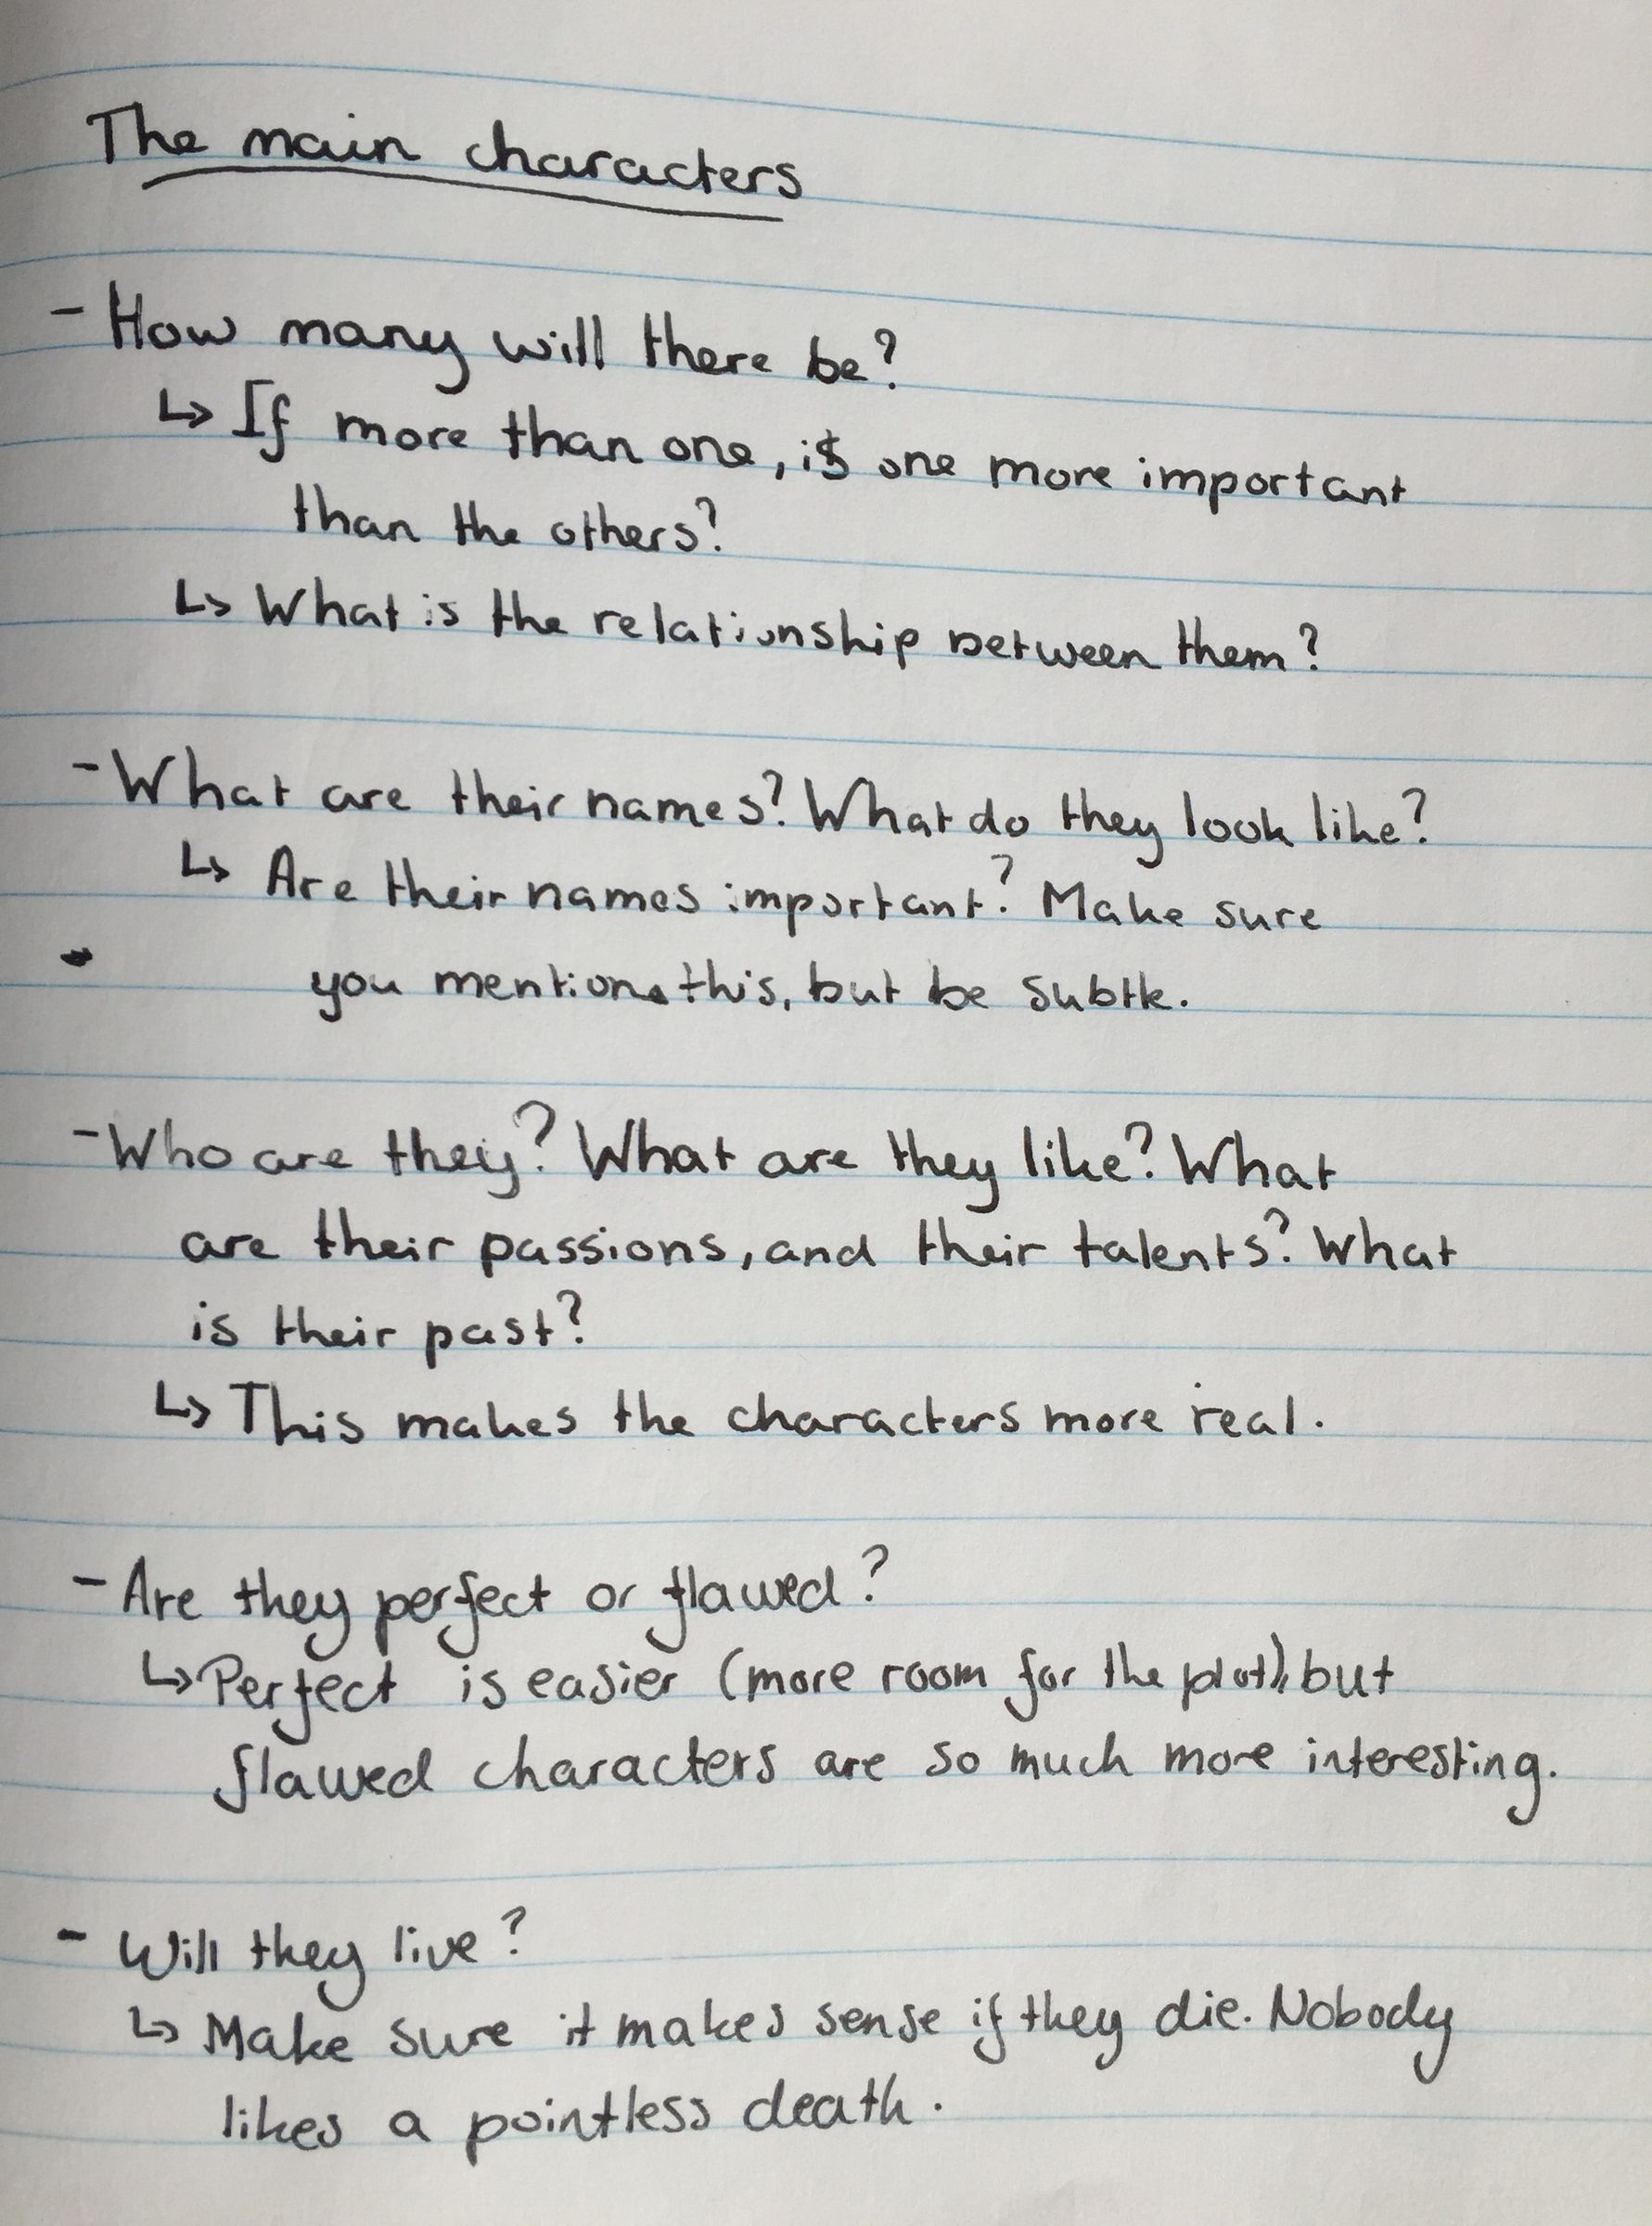 The main characters
- How many will there be?
↳ If more than one, is one more important
than the others?
↳ What is the relationship between them?
- What are their names? What do they look like?
↳ Are their names important? Make sure
you mention this, but be subtle.
- Who are they? What are they like? What
are their passions, and their talents? What
is their past?
↳ This makes the characters more real.
- Are they perfect or flawed?
↳ Perfect is easier (more room for the plot), but
flawed characters are so much more interesting.
- Will they live?
↳ Make sure it makes sense if they die. Nobody
likes a pointless death.